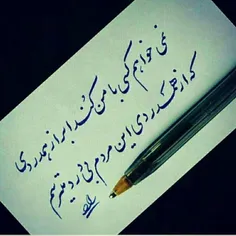 نمی خواهم کسی با من کند ابراز همدردی
که از همدردی این مردم بی درد میترسم